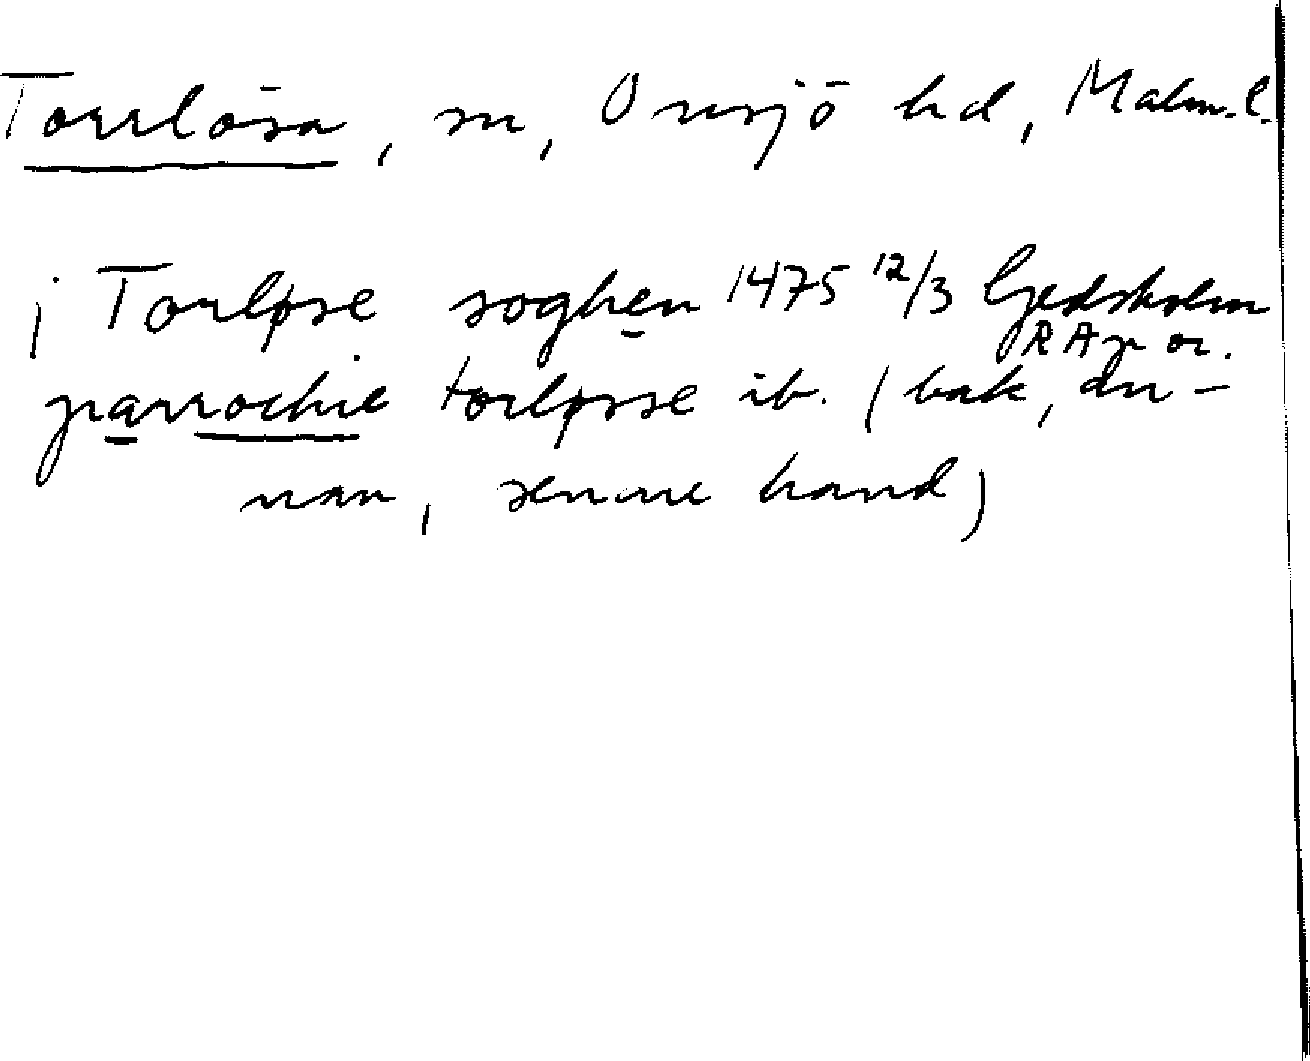 Torrlösa, sn, Onsjö hd, Malm. l.
j Torløse soghen 1475 12/3 Gedsholm
RAp or.
parrochie torløsse ib. (bak, an-
nan, senare hand)